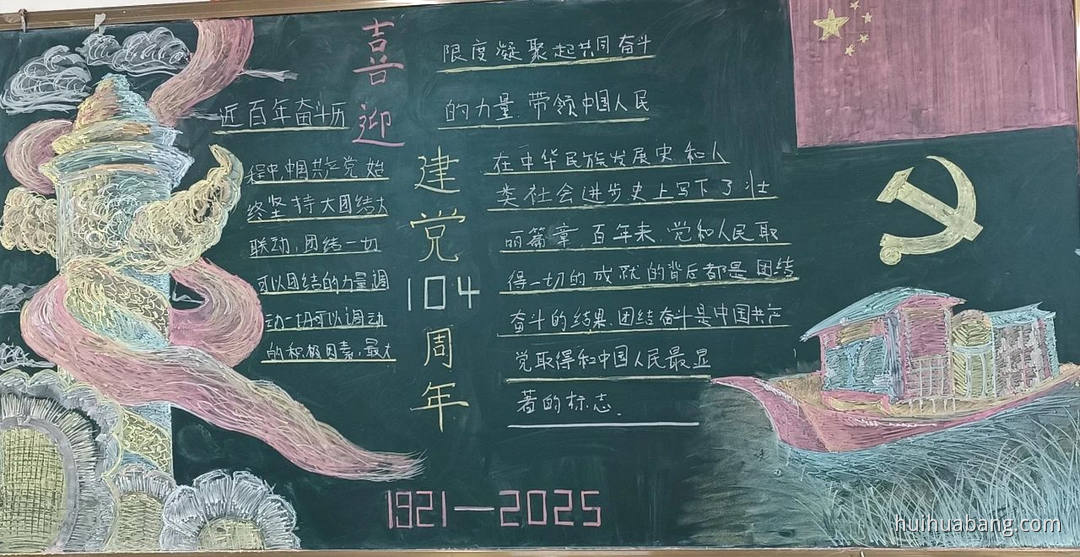 喜迎
建党104周年
近百年奋斗历
程中中国共产党始
终坚持大团结大
联动,团结一切
可以团结的力量调
动一切可以调动
的积极因素,最大
限度凝聚起共同奋斗
的力量 带领中国人民
在中华民族发展史和人
类社会进步史上写下了壮
丽篇章 百年来 党和人民取
得一切的成就的背后都是团结
奋斗的结果,团结奋斗是中国共产
党取得和中国人民最显
著的标志.
1921—2025
huihuabang.com